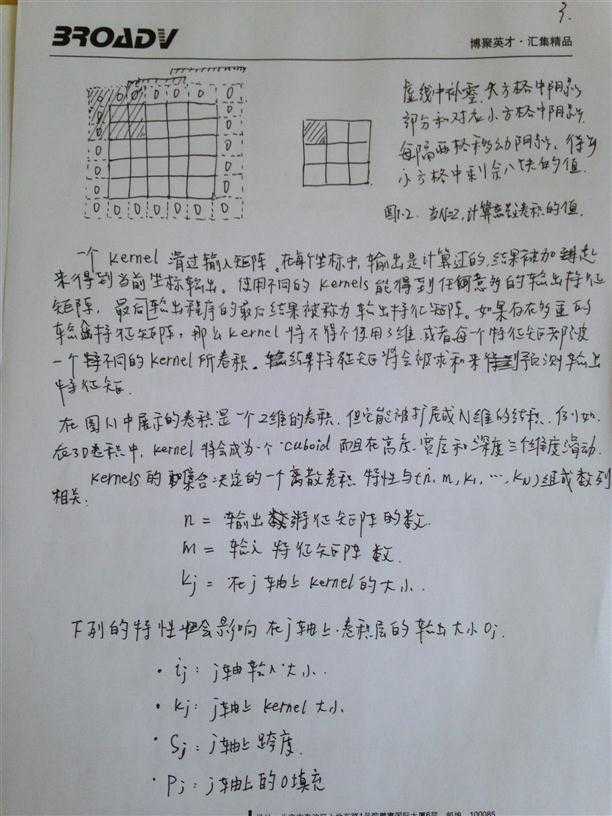 3.
BROADV
博聚英才·汇集精品
0 0 0 0 0 0 0
0 0
0 0
0 0
0 0
0 0
0 0 0 0 0 0 0
虚线中补零,大方格中阴影
部分和对应小方格中阴影.
每隔两格移动阴影,得到
小方格中剩余八块的值.
图1.2. 当N=2,计算离散卷积的值.
一个 kernel 滑过输入矩阵。在每个坐标中,输出是计算过的,结果被加起
来得到当前坐标输出。使用不同的 kernels 能得到任何意多的输出特征
矩阵, 最后输出程序的最后结果被称为输出特征矩阵。如果存在多重的
输入特征矩阵,那么 kernel 将不得不使用3维.或者每个特征矩阵都被
一个不同的kernel所卷积。结果特征矩将会被求和来得到预测输出
特征矩.
在图1.1中展示的卷积是一个2维的卷积.但它能被扩展成N维的卷积.例如如.
在3D卷积中, kernel 将会成为一个 cuboid 而且在高度.宽度和深度三个维度滑动.
kernels的集合决定的一个离散卷积 特性与(n, m, k1, ..., kN)组成数列
相关.
n = 输出特征矩阵的数.
m = 输入特征矩阵数.
kj = 在j轴上kernel的大小.
下列的特性也会影响在j轴上.卷积层的输出大小Oj.
· ij: j轴输入大小.
· kj: j轴上kernel大小.
· Sj: j轴上跨度.
· Pj: j轴上的0填充
100085